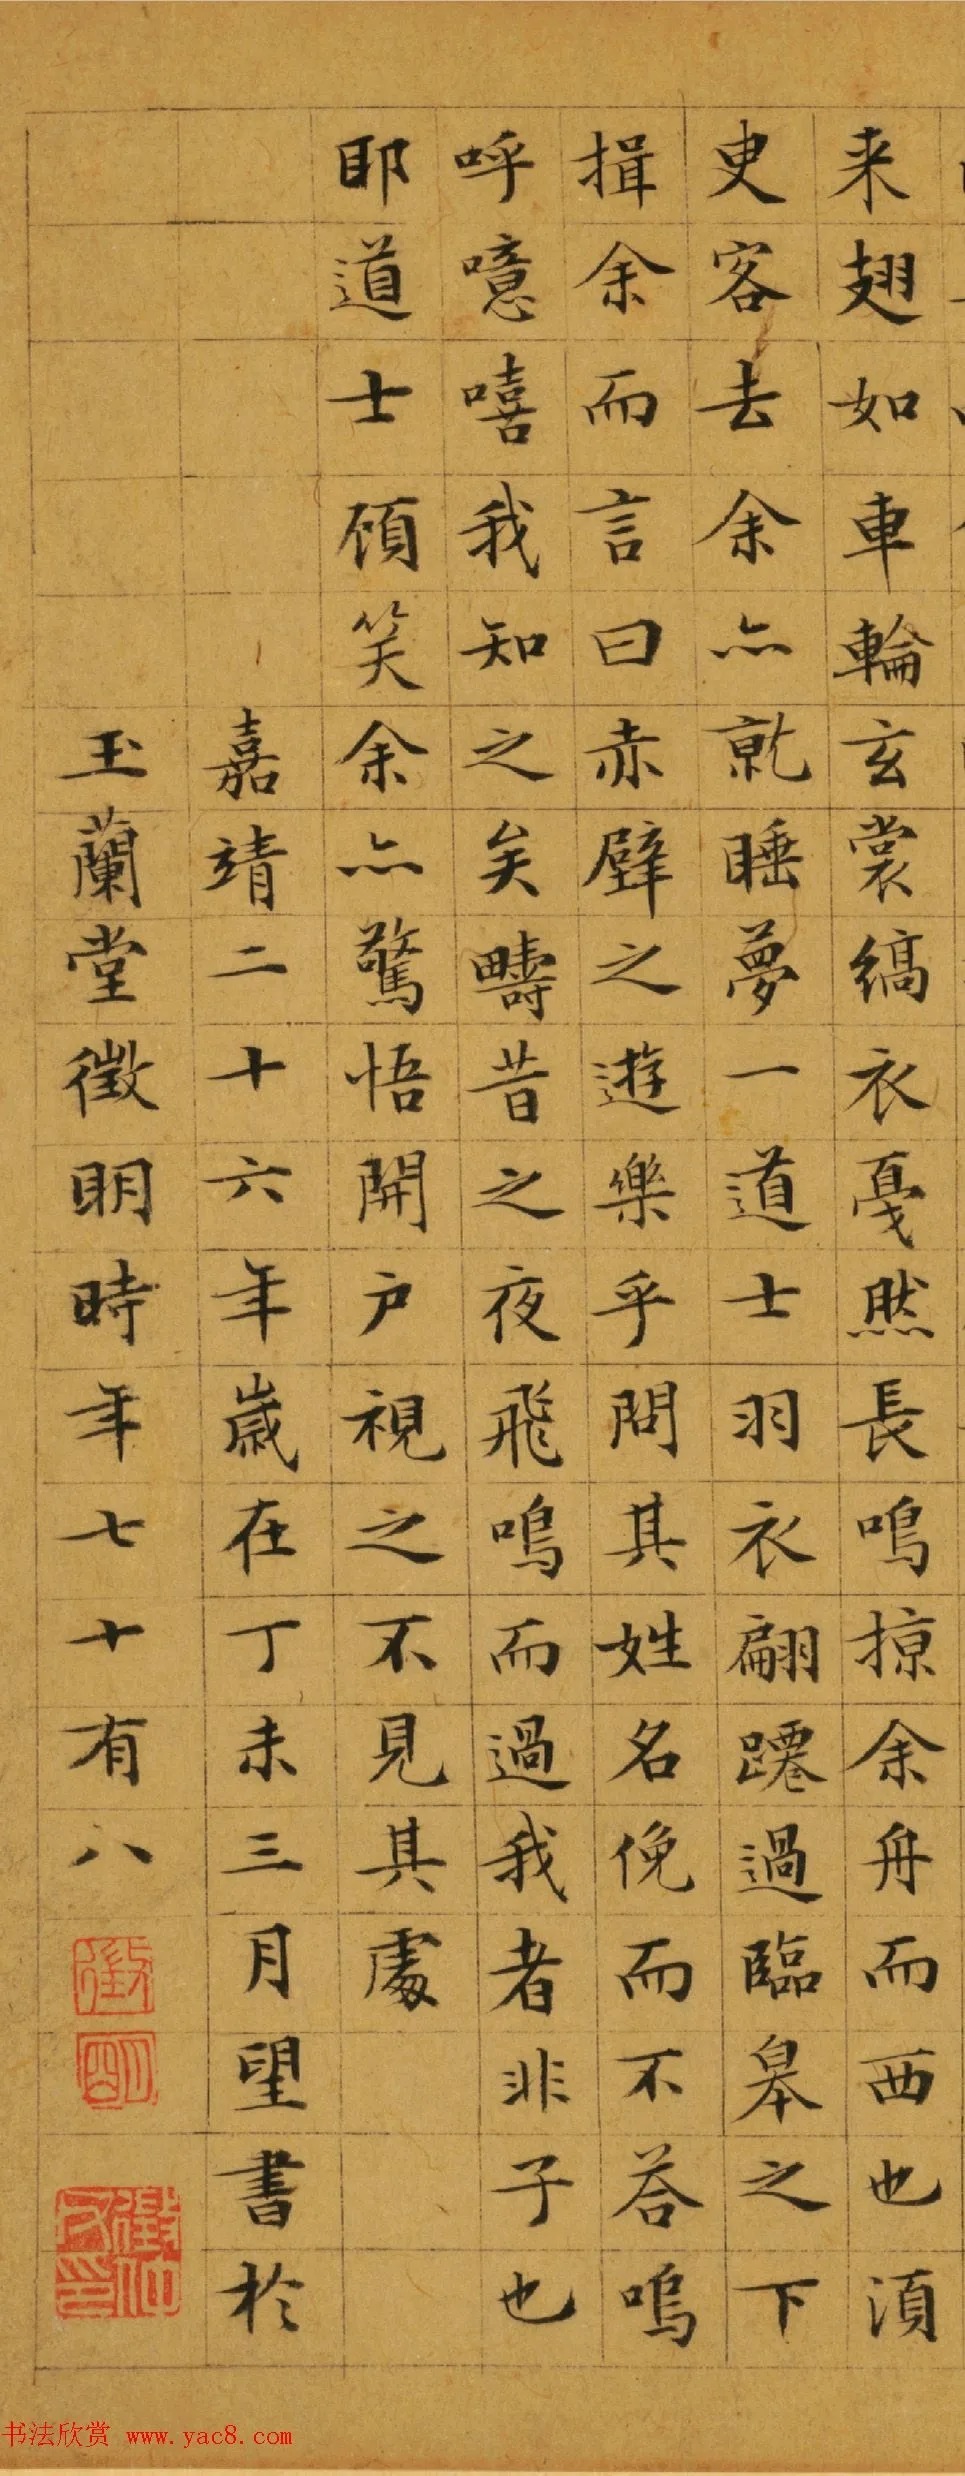 来翅如車輪玄裳縞衣戛然長鳴掠余舟而西也湏
臾客去余亦就睡夢一道士羽衣翩躚過臨皋之下
揖余而言曰赤壁之遊樂乎問其姓名俛而不荅嗚
呼噫嘻我知之矣疇昔之夜飛鳴而過我者非子也
耶道士顧笑余亦驚悟開户視之不見其處
嘉靖二十六年歲在丁未三月望書於
玉蘭堂徵明時年七十有八
徵
明
书法欣赏 www.yac8.com